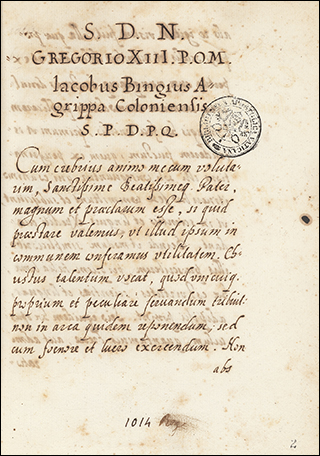 S. D. N.
GREGORIO XIII. P. O. M.
Iacobus Bingius A
grippa Coloniensis
S. P. D. P. Q.
Cum crebrius animo mecum voluta-
rim, Sanctissime Beatissimeq. Pater,
magnum et praeclarum esse, si quid
praestare valemus, vt illud ipsum in
communem conferamus vtilitatem. Ch
ristus talentum vocat, quod vnicuiq.
proprium et peculiare seruandum tribuit
non in arca quidem reponendum, sed
cum foenore et lucro exercendum. Non
abs
1014 Reg
2